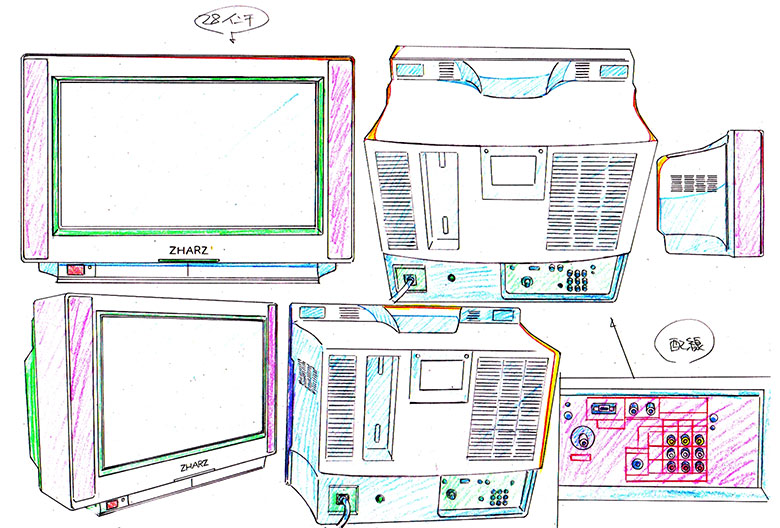 28インチ
ZHARZ
ZHARZ
配線